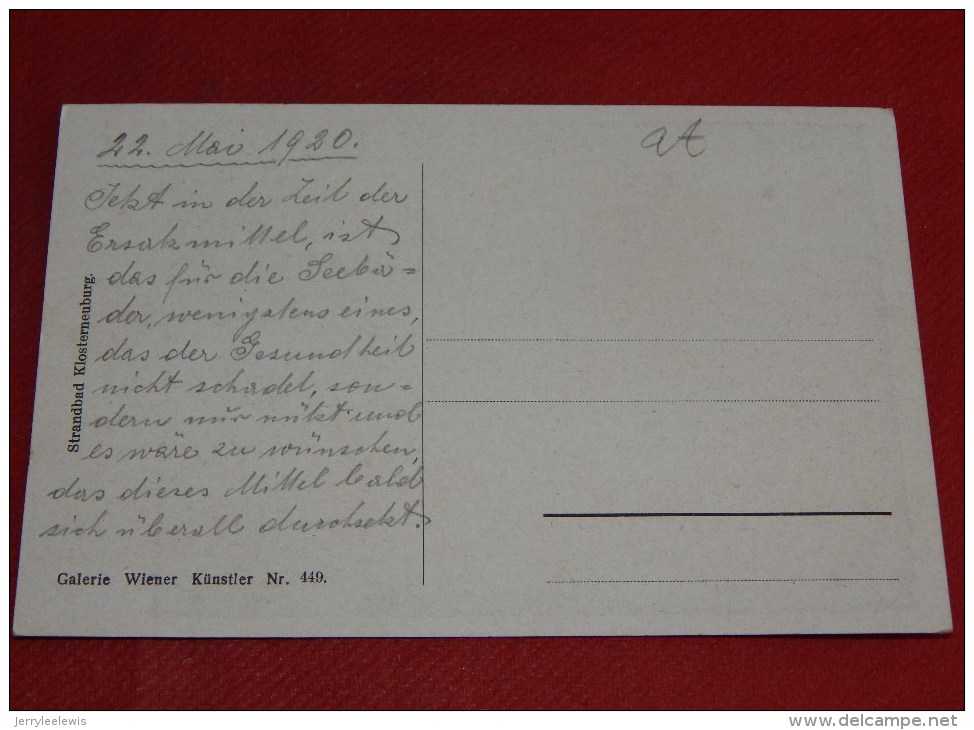 22. Mai 1920.
at
Jetzt in der Zeit der
Ersatzmittel, ist
das für die Seebä=
der, wenigstens eines,
das der Gesundheit
nicht schadet, son=
dern nur nützt und
es wäre zu wünschen,
das dieses Mittel bald
sich überall durchsetzt.
Strandbad Klosterneuburg.
Galerie Wiener Künstler Nr. 449.
jerryleelewis
www.delcampe.net